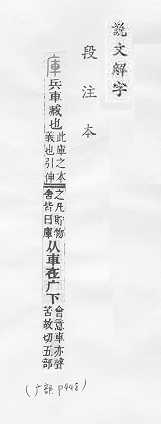 說文解字
段注本
庫兵車藏也此庫之本義也引伸之凡貯物舍皆曰庫从車在广下會意車亦聲苦故切五部
(广部 p448)